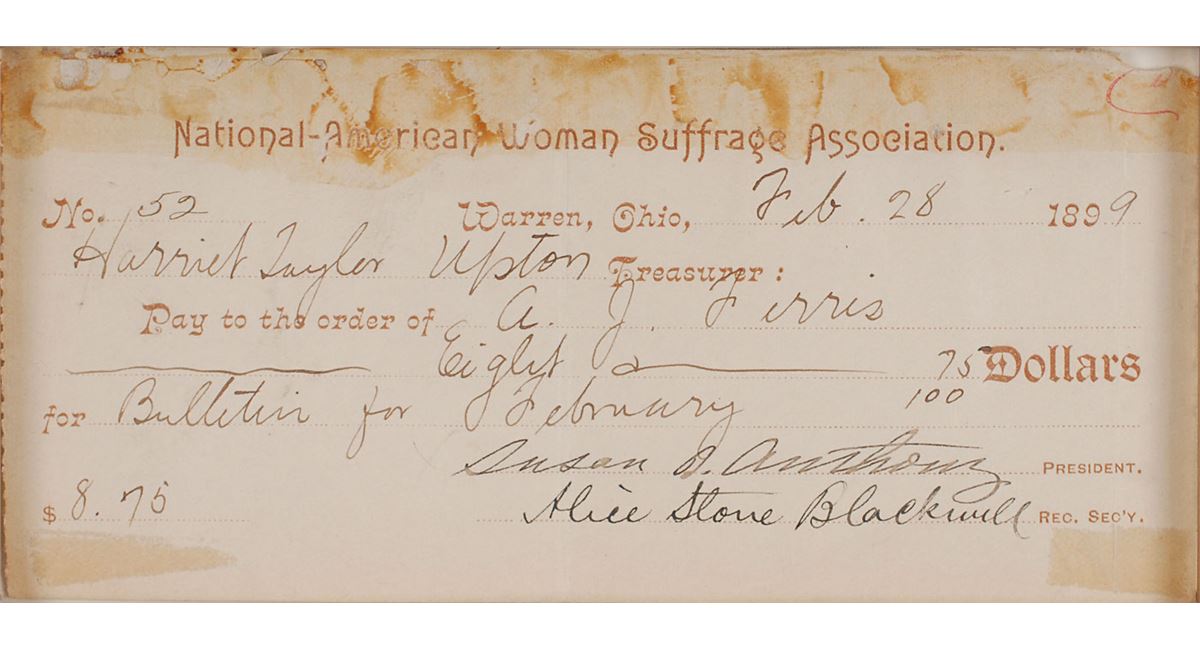 National-American Woman Suffrage Association.
No. 52 Warren, Ohio, Feb. 28 1899
Harriet Taylor Upton Treasurer:
Pay to the order of A. J. Ferris
Eight & 75/100 Dollars
for Bulletin for February
Susan B. Anthony PRESIDENT.
$ 8.75 Alice Stone Blackwell REC. SEC'Y.